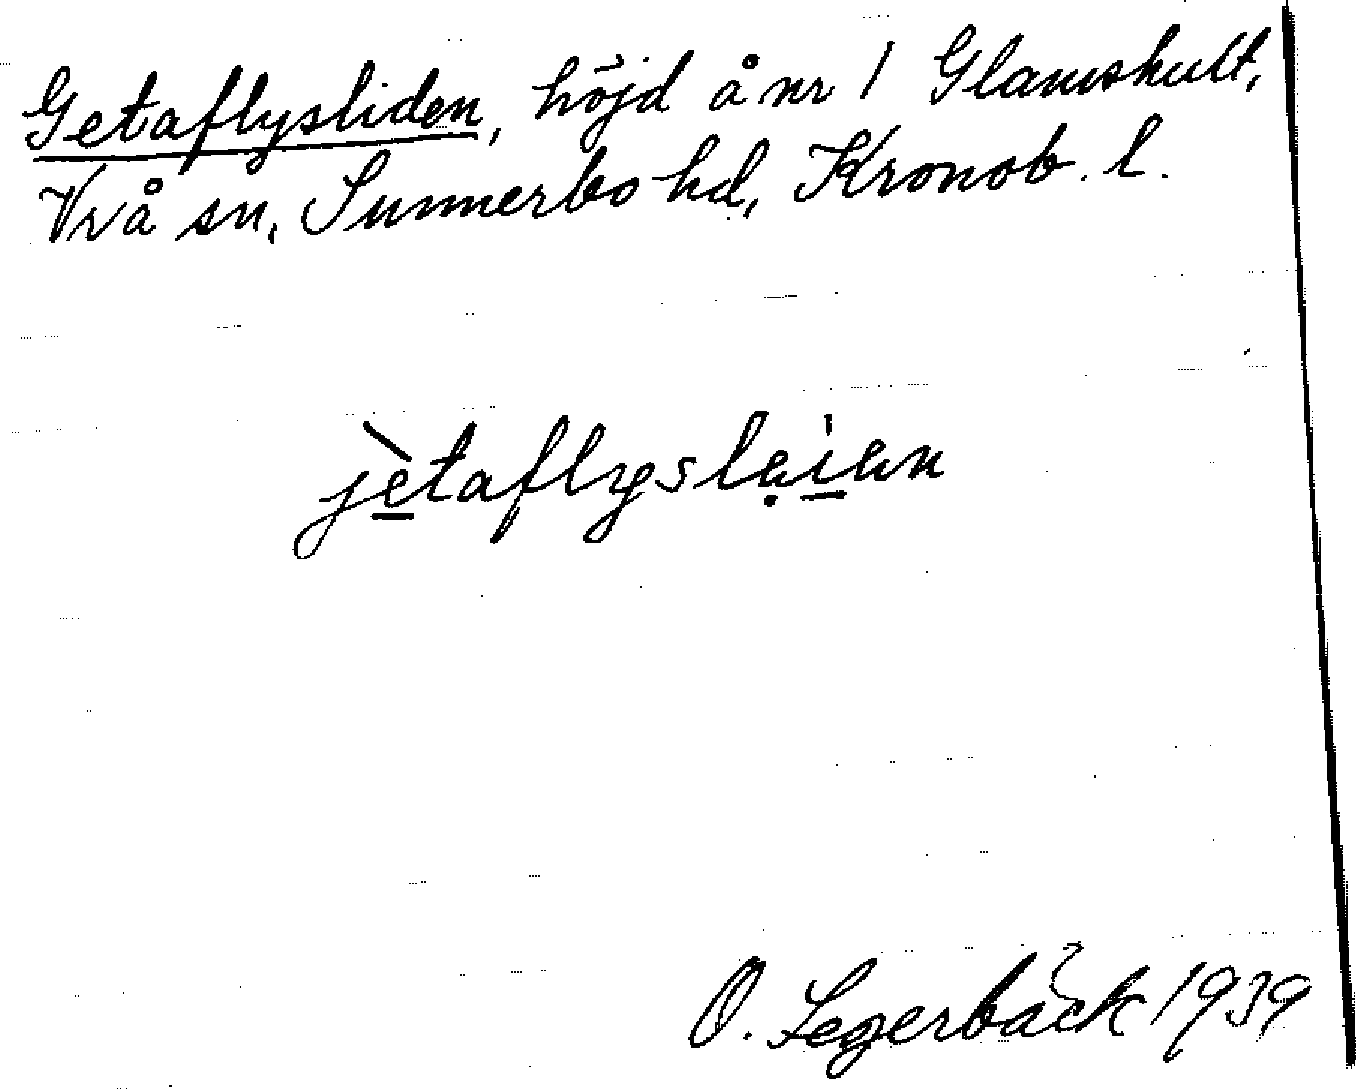 Getaflysliden, höjd å nr 1 Glamshult,
Vrå sn, Sunnerbo hd, Kronob. l.
jètaflyslẹien
O. Segerbäck 1939